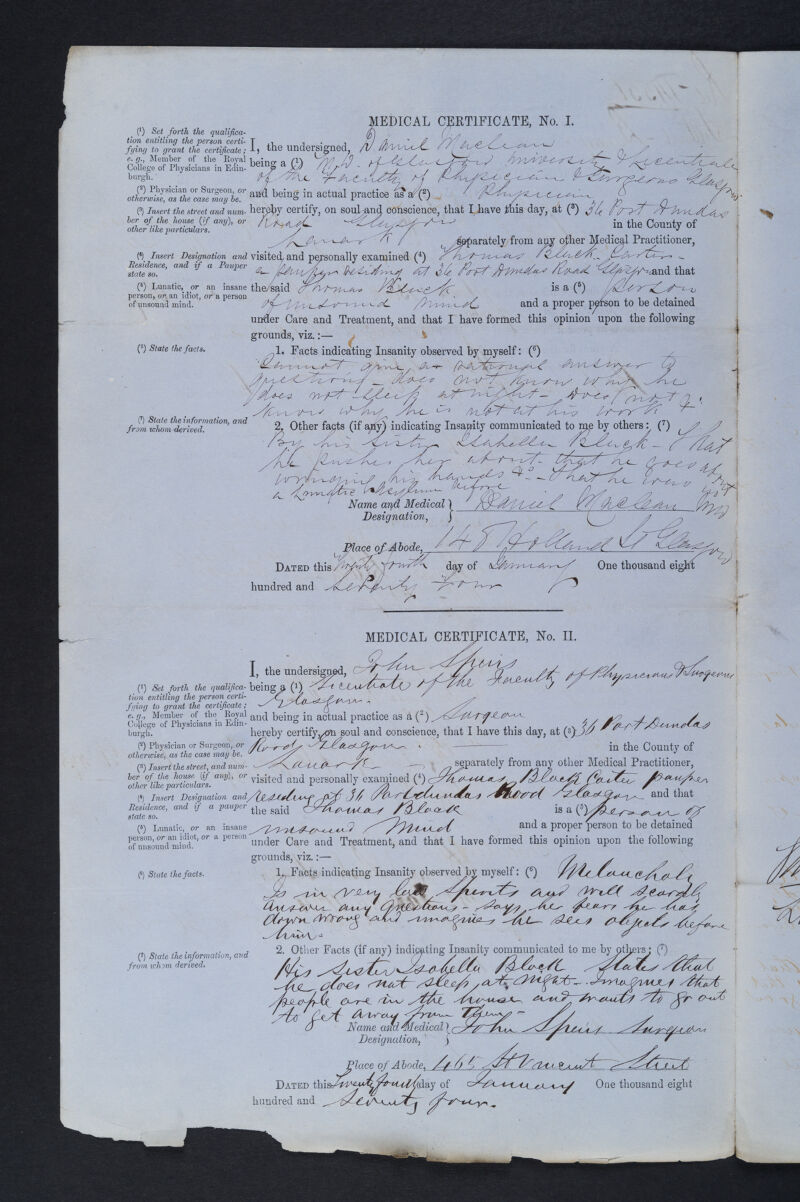 MEDICAL CERTIFICATE, No. I.
(¹) Set forth the qualifica-
tion entitling the person certi-
fying to grant the certificate;
e. g., Member of the Royal
College of Physicians in Edin-
burgh.
(²) Physician or Surgeon, or
otherwise, as the case may be.
(³) Insert the street and num-
ber of the house (if any), or
other like particulars.
(⁴) Insert Designation and
Residence, and if a Pauper
state so.
(⁵) Lunatic, or an insane
person, or an idiot, or a person
of unsound mind.
(⁶) State the facts.
(⁷) State the information, and
from whom derived.
I, the undersigned, Daniel Maclean
being a (¹) M.D. of Glasgow University & Licentiate
of the Faculty of Physicians & Surgeons Glasgow
and being in actual practice as a (²) Physician
hereby certify, on soul and conscience, that I have this day, at (³) 36 Port Dundas
Road Glasgow in the County of
Lanark separately from any other Medical Practitioner,
visited and personally examined (⁴) Thomas Black Carter
a pauper residing at 36 Port Dundas Road Glasgow and that
the said Thomas Black is a (⁵) person
of unsound mind and a proper person to be detained
under Care and Treatment, and that I have formed this opinion upon the following
grounds, viz.:—
1. Facts indicating Insanity observed by myself: (⁶)
Cannot give a rational answer to
questions - does not know what he
does not sleep at night - Does not
know why he is not at his work &
2. Other facts (if any) indicating Insanity communicated to me by others: (⁷)
By his Sister Isabella Black - That
he pushes her about that he goes about
wringing his hands &c - That he was in
a Lunatic Asylum before
Name and Medical Designation, Daniel Maclean MD
Place of Abode, 148 Holland St Glasgow
DATED this Twenty fourth day of January One thousand eight
hundred and seventy four
MEDICAL CERTIFICATE, No. II.
(¹) Set forth the qualifica-
tion entitling the person certi-
fying to grant the certificate;
e. g., Member of the Royal
College of Physicians in Edin-
burgh.
(²) Physician or Surgeon, or
otherwise, as the case may be.
(³) Insert the street, and num-
ber of the house (if any), or
other like particulars.
(⁴) Insert Designation and
Residence, and if a pauper
state so.
(⁵) Lunatic, or an insane
person, or an idiot, or a person
of unsound mind.
(⁶) State the facts.
(⁷) State the information, and
from whom derived.
I, the undersigned, John Speirs
being a (¹) Licentiate of the Faculty of Physicians & Surgeons
Glasgow.
and being in actual practice as a (²) Surgeon
hereby certify, on soul and conscience, that I have this day, at (³) 36 Port Dundas
Road, Glasgow. in the County of
Lanark separately from any other Medical Practitioner,
visited and personally examined (⁴) Thomas Black Carter pauper
residing at 36 Portdundas Road Glasgow and that
the said Thomas Black is a (⁵) person of
unsound Mind and a proper person to be detained
under Care and Treatment, and that I have formed this opinion upon the following
grounds, viz.:—
1. Facts indicating Insanity observed by myself: (⁶) Melancholy
Is in very low spirits and will scarcely
answer any questions - says he fears he has
done wrong and imagines he sees objects before
him.
2. Other Facts (if any) indicating Insanity communicated to me by others; (⁷)
His Sister Isabella Black States that
he does not sleep at night - Imagines that
people are in the house and wants to go out
to get away from them -
Name and Medical Designation, John Speirs Surgeon
Place of Abode, 465 St Vincent Street
DATED this Twenty fourth day of January One thousand eight
hundred and seventy four.